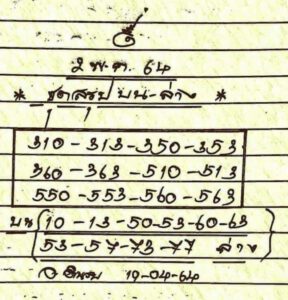 2 พ.ค. 64
* ชุดสรุป บน-ล่าง *
310 - 313 - 350 - 353
360 - 363 - 510 - 513
550 - 553 - 560 - 563
บน 10 - 13 - 50 - 53 - 60 - 63
53 - 57 - 73 - 77 ล่าง
19-04-64